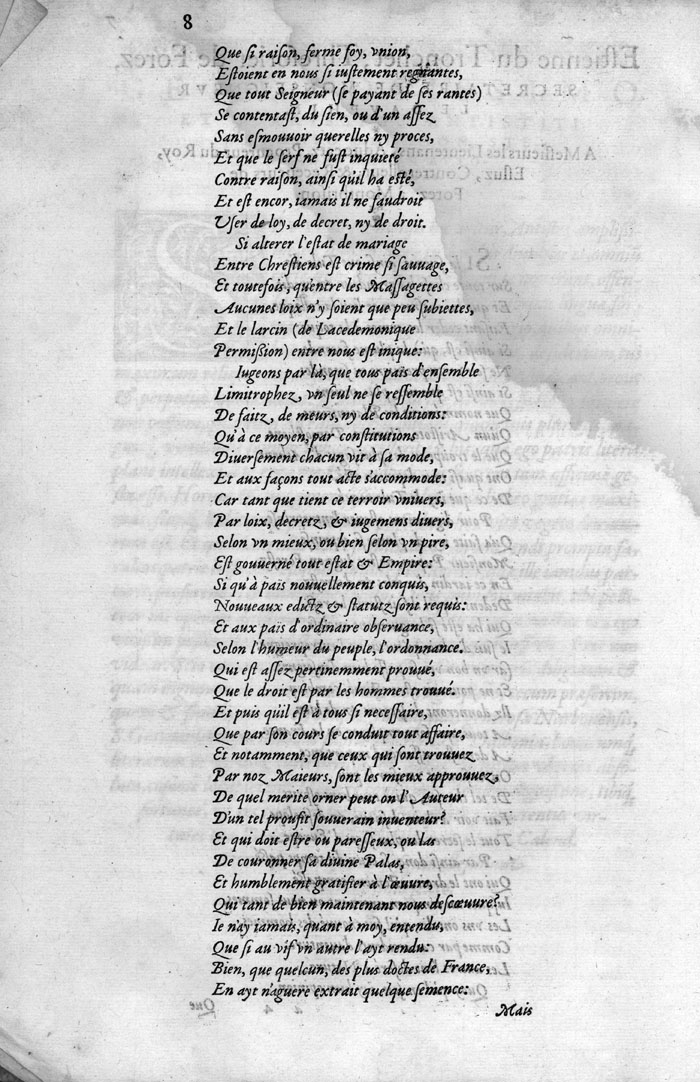 8
Que si raiſon, ferme foy, vnion,
Eſtoient en nous ſi iuſtement regnantes,
Que tout Seigneur (ſe payant de ſes rantes)
Se contentaſt, du ſien, ou d'un aſſez
Sans eſmouuoir querelles ny proces,
Et que le ſerf ne fuſt inquieté
Contre raiſon, ainſi qu'il ha eſté,
Et eſt encor, iamais il ne faudroit
Vſer de loy, de decret, ny de droit.
Si alterer l'eſtat de mariage
Entre Chreſtiens eſt crime ſi ſauuage,
Et toutefois, qu'entre les Maſſagettes
Aucunes loix n'y ſoient que peu ſubiettes,
Et le larcin (de Lacedemonique
Permißion) entre nous eſt inique:
Iugeons par là, que tous païs d'enſemble
Limitrophez, vn ſeul ne ſe reſſemble
De faitz, de meurs, ny de conditions:
Qu'à ce moyen, par conſtitutions
Diuerſement chacun vit à ſa mode,
Et aux façons tout acte s'accommode:
Car tant que tient ce terroir vniuers,
Par loix, decretz, & iugemens diuers,
Selon vn mieux, ou bien ſelon vn pire,
Eſt gouuerné tout eſtat & Empire:
Si qu'à païs nouuellement conquis,
Nouueaux edictz & ſtatutz ſont requis:
Et aux païs d'ordinaire obſeruance,
Selon l'humeur du peuple, l'ordonnance.
Qui eſt aſſez pertinemment prouué,
Que le droit eſt par les hommes trouué.
Et puis qu'il eſt à tous ſi neceſſaire,
Que par ſon cours ſe conduit tout affaire,
Et notamment, que ceux qui ſont trouuez
Par noz Maieurs, ſont les mieux approuuez,
De quel merite orner peut on l'Auteur
D'un tel proufit ſouuerain inuenteur?
Et qui doit eſtre ou pareſſeux, ou las
De couronner ſa diuine Palas,
Et humblement gratifier à l'œuure,
Qui tant de bien maintenant nous deſcœuure?
Ie n'ay iamais, quant à moy, entendu,
Que ſi au vif vn autre l'ayt rendu:
Bien, que quelcun, des plus doctes de France,
En ayt n'aguere extrait quelque ſemence:
Mais